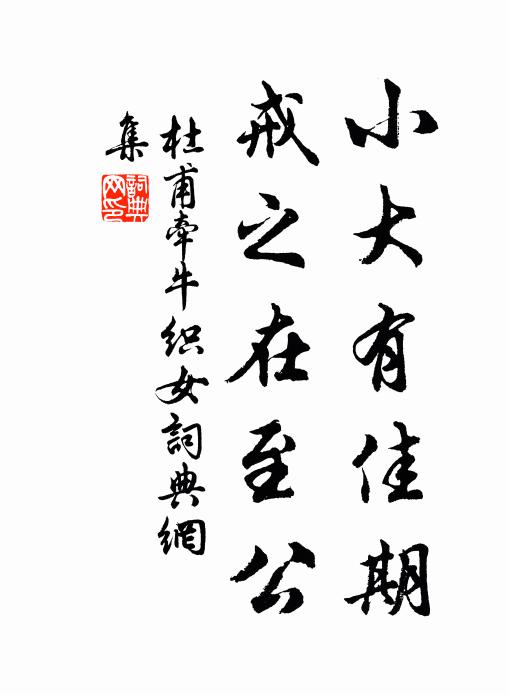 小大有佳期
戒之在至公
杜甫牽牛織女詞典網
集
詞典
网印